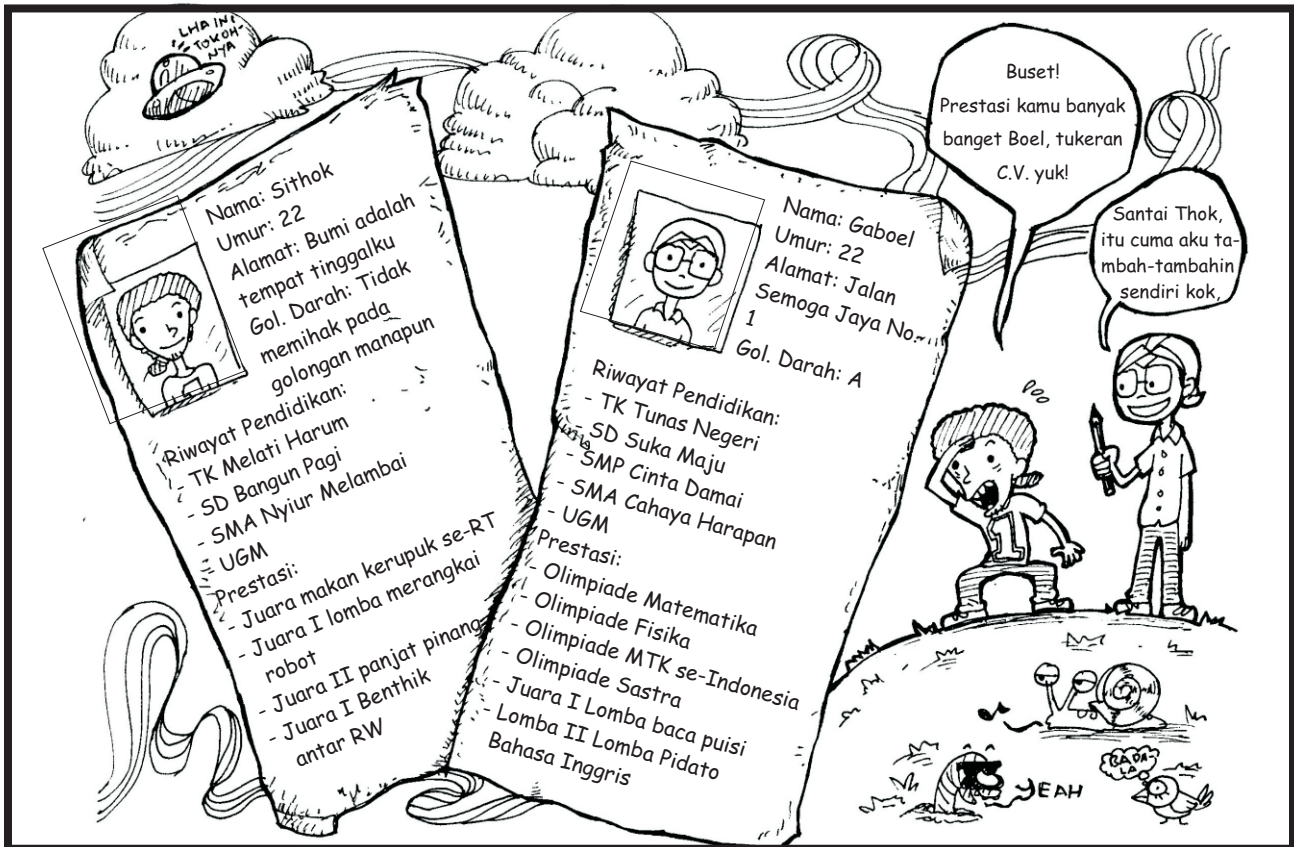 LHA INI
TOKOH-
NYA
Nama: Sithok
Umur: 22
Alamat: Bumi adalah
tempat tinggalku
Gol. Darah: Tidak
memihak pada
golongan manapun
Riwayat Pendidikan:
- TK Melati Harum
- SD Bangun Pagi
- SMA Nyiur Melambai
- UGM
Prestasi:
- Juara makan kerupuk se-RT
- Juara I lomba merangkai
robot
- Juara II panjat pinang
- Juara I Benthik
antar RW
Nama: Gaboel
Umur: 22
Alamat: Jalan
Semoga Jaya No.
1
Gol. Darah: A
Riwayat Pendidikan:
- TK Tunas Negeri
- SD Suka Maju
- SMP Cinta Damai
- SMA Cahaya Harapan
- UGM
Prestasi:
- Olimpiade Matematika
- Olimpiade Fisika
- Olimpiade MTK se-Indonesia
- Olimpiade Sastra
- Juara I Lomba baca puisi
- Lomba II Lomba Pidato
Bahasa Inggris
Buset!
Prestasi kamu banyak
banget Boel, tukeran
C.V. yuk!
Santai Thok,
itu cuma aku ta-
mbah-tambahin
sendiri kok,
1
YEAH
BADA-
LA